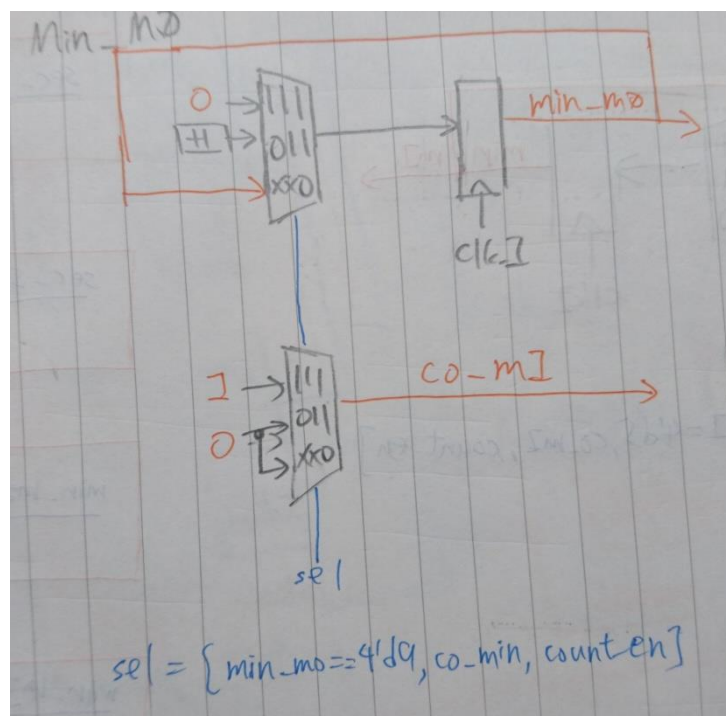 Min_M0
0
111
+1
011
xx0
min_m0
clk_I
1
111
co_m1
0
011
xx0
sel
sel = {min_mo==4'd9, co_min, count en}